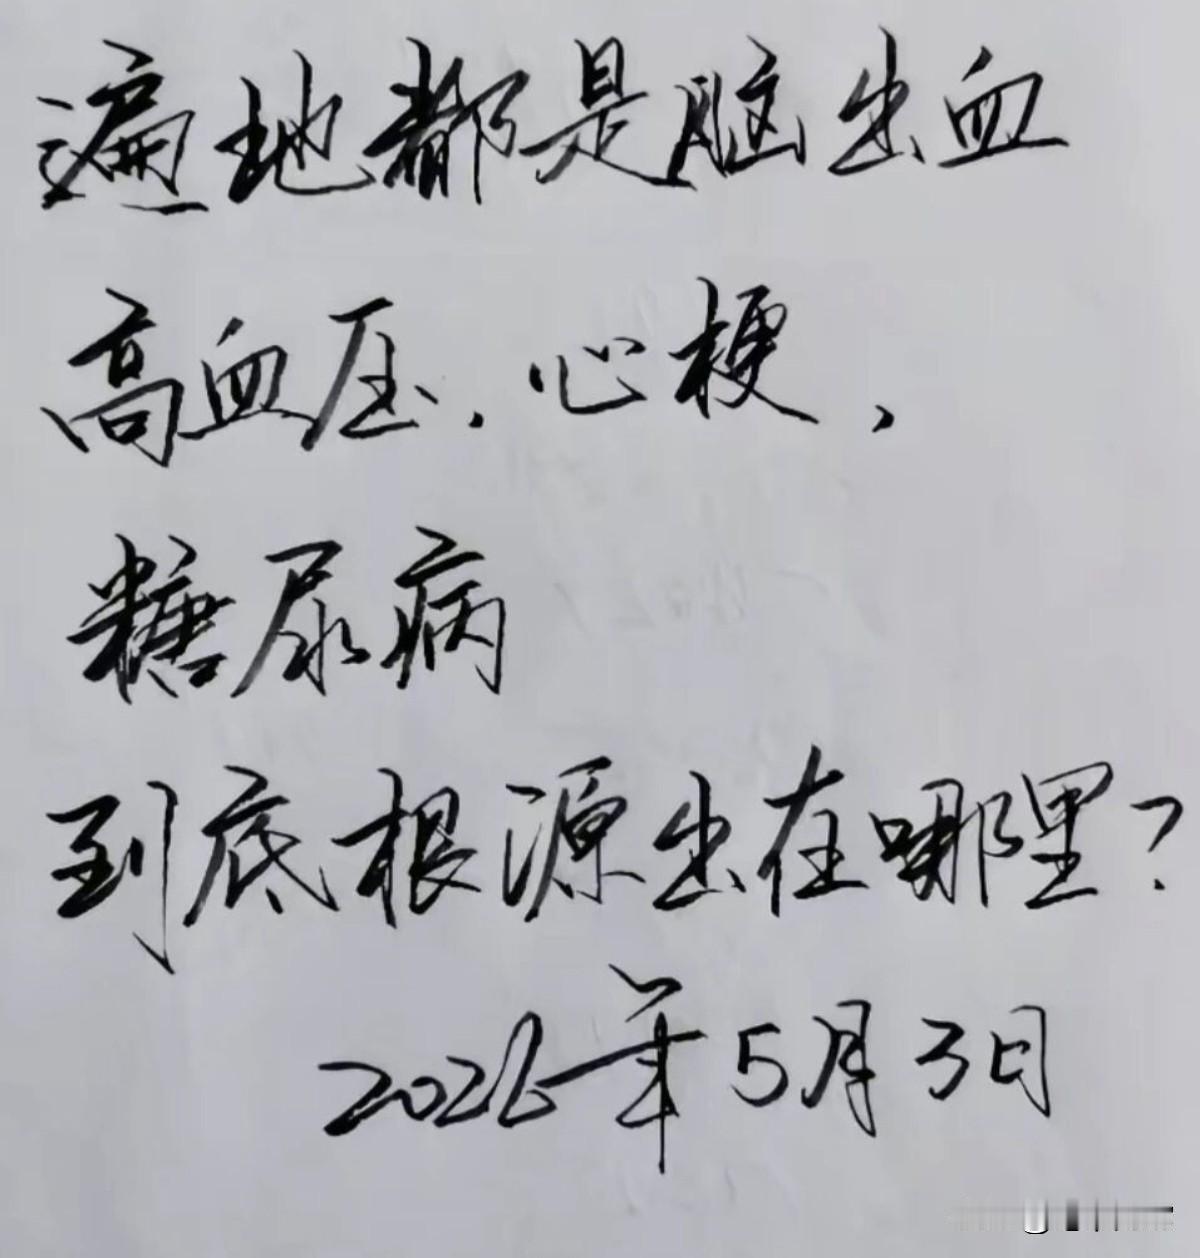 遍地都是脑出血
高血压，心梗，
糖尿病
到底根源出在哪里？
2026年5月3日